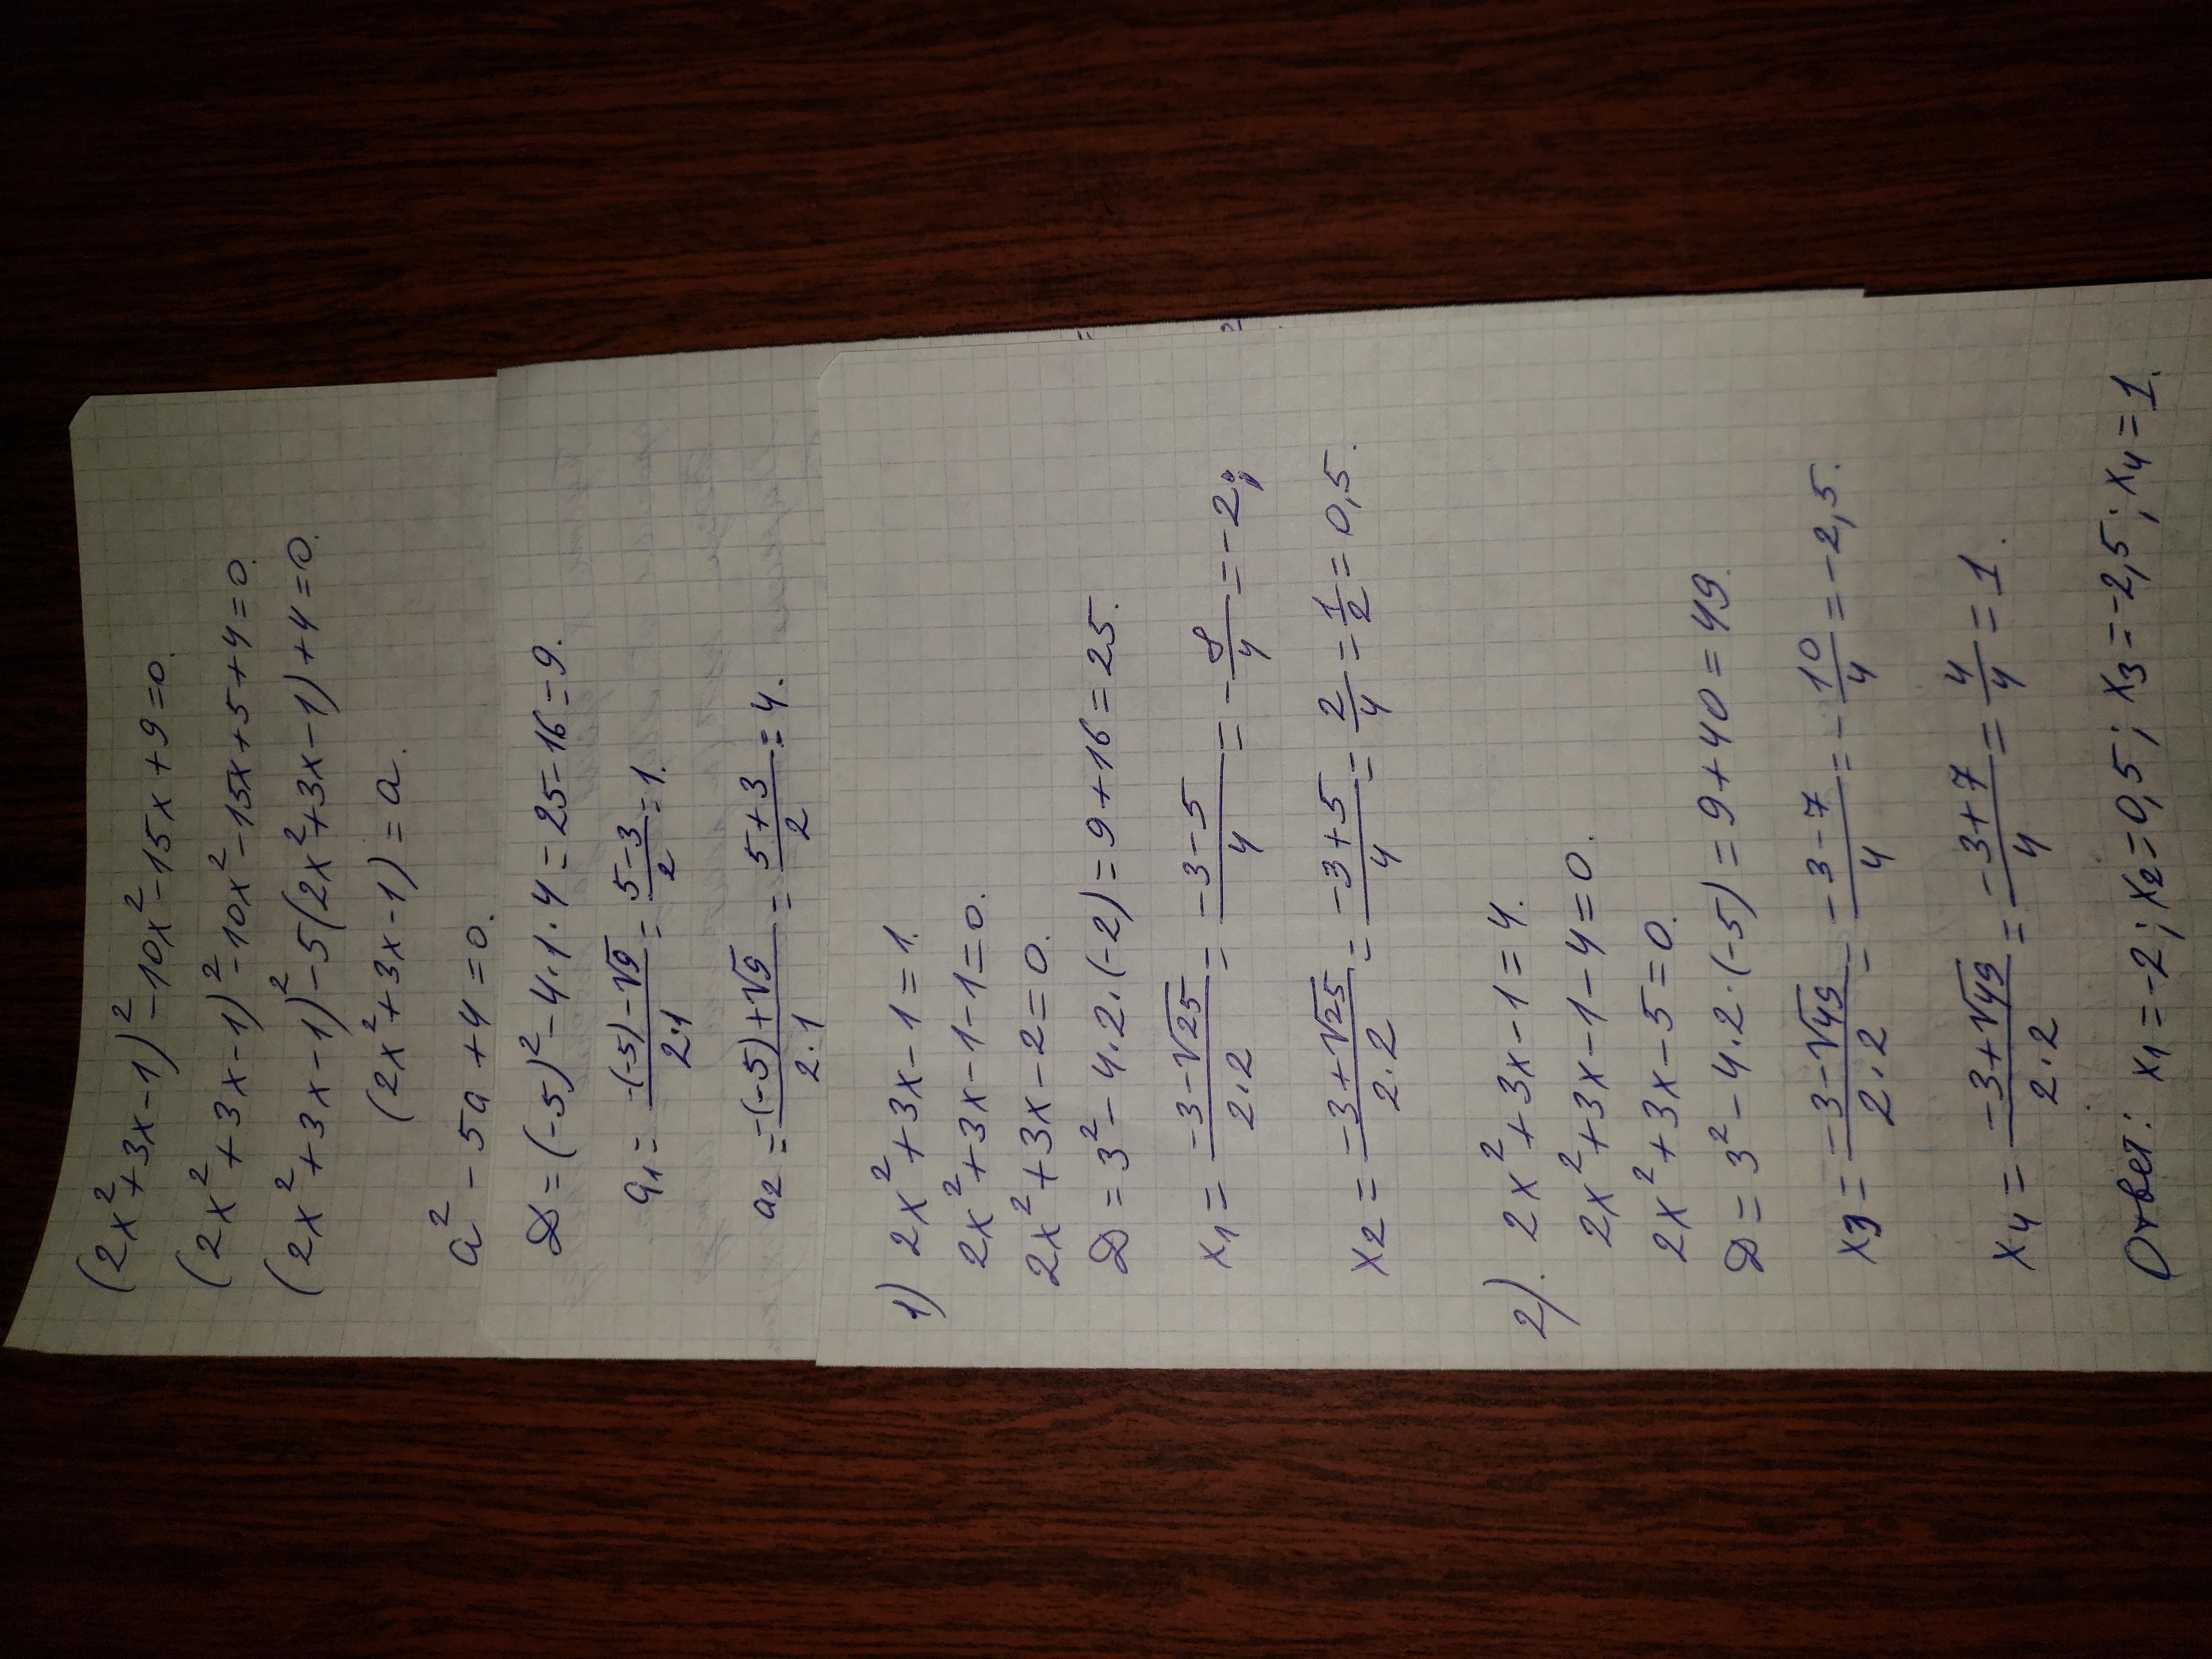 (2x²+3x-1)²-10x²-15x+9=0.
(2x²+3x-1)²-10x²-15x+5+4=0.
(2x²+3x-1)²-5(2x²+3x-1)+4=0.
(2x²+3x-1)=a.
a²-5a+4=0.
D=(-5)²-4·1·4=25-16=9.
a₁=(-(-5)-√9)/(2·1)=(5-3)/2=1.
a₂=(-(-5)+√9)/(2·1)=(5+3)/2=4.
1) 2x²+3x-1=1.
2x²+3x-1-1=0.
2x²+3x-2=0.
D=3²-4·2·(-2)=9+16=25.
x₁=(-3-√25)/(2·2)=(-3-5)/4=-8/4=-2;
x₂=(-3+√25)/(2·2)=(-3+5)/4=2/4=1/2=0,5.
2). 2x²+3x-1=4.
2x²+3x-1-4=0.
2x²+3x-5=0.
D=3²-4·2·(-5)=9+40=49.
x₃=(-3-√49)/(2·2)=(-3-7)/4=-10/4=-2,5.
x₄=(-3+√49)/(2·2)=(-3+7)/4=4/4=1.
Ответ: x₁=-2; x₂=0,5; x₃=-2,5; x₄=1.